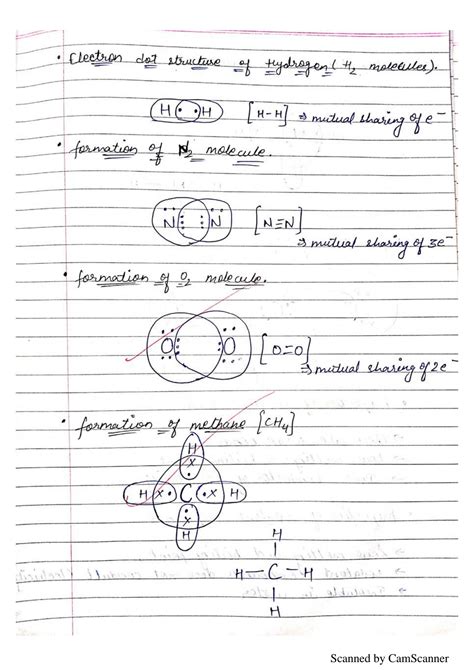 • Electron dot structure of Hydrogen (H2 molecules).
H H [H-H] ⇒ mutual sharing of e⁻
• formation of N2 molecule.
N N [N≡N]
⇒ mutual sharing of 3e⁻
• formation of O2 molecule.
O O [O=O]
⇒ mutual sharing of 2e⁻
• formation of methane [CH4]
H
x
H x • C • x H
x
H
H
H-C-H
H
Scanned by CamScanner